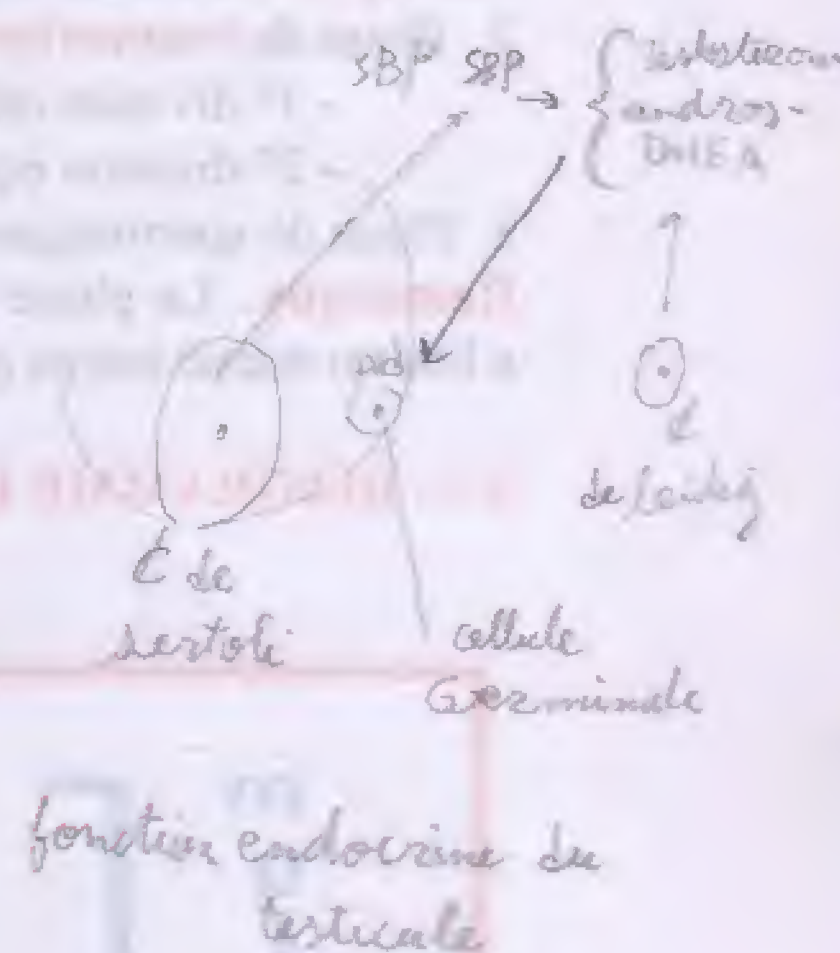 SBP SBP → testosterone
andros-
DHEA
ȼ
de Leydig
ȼ de
sertoli
cellule
Germinale
fonction endocrine du
testicule